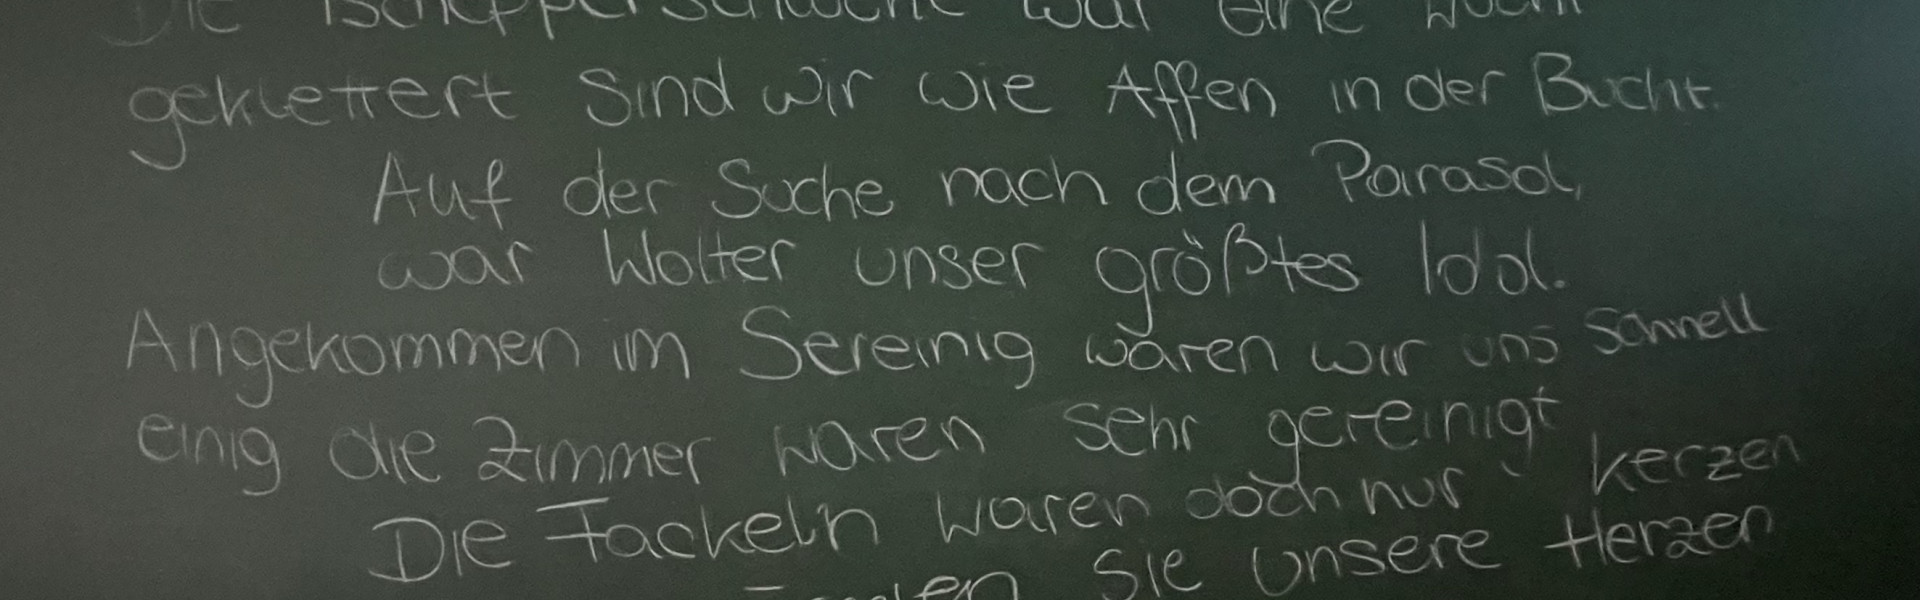 Die war eine Wucht
geklettert Sind wir wie Affen in der Bucht.
Auf der Suche nach dem Parasol,
war Wolter unser größtes Idol.
Angekommen im Sereinig waren wir uns schnell
einig die Zimmer waren sehr gereinigt
Die Fackeln waren doch nur kerzen
Sie unsere Herzen